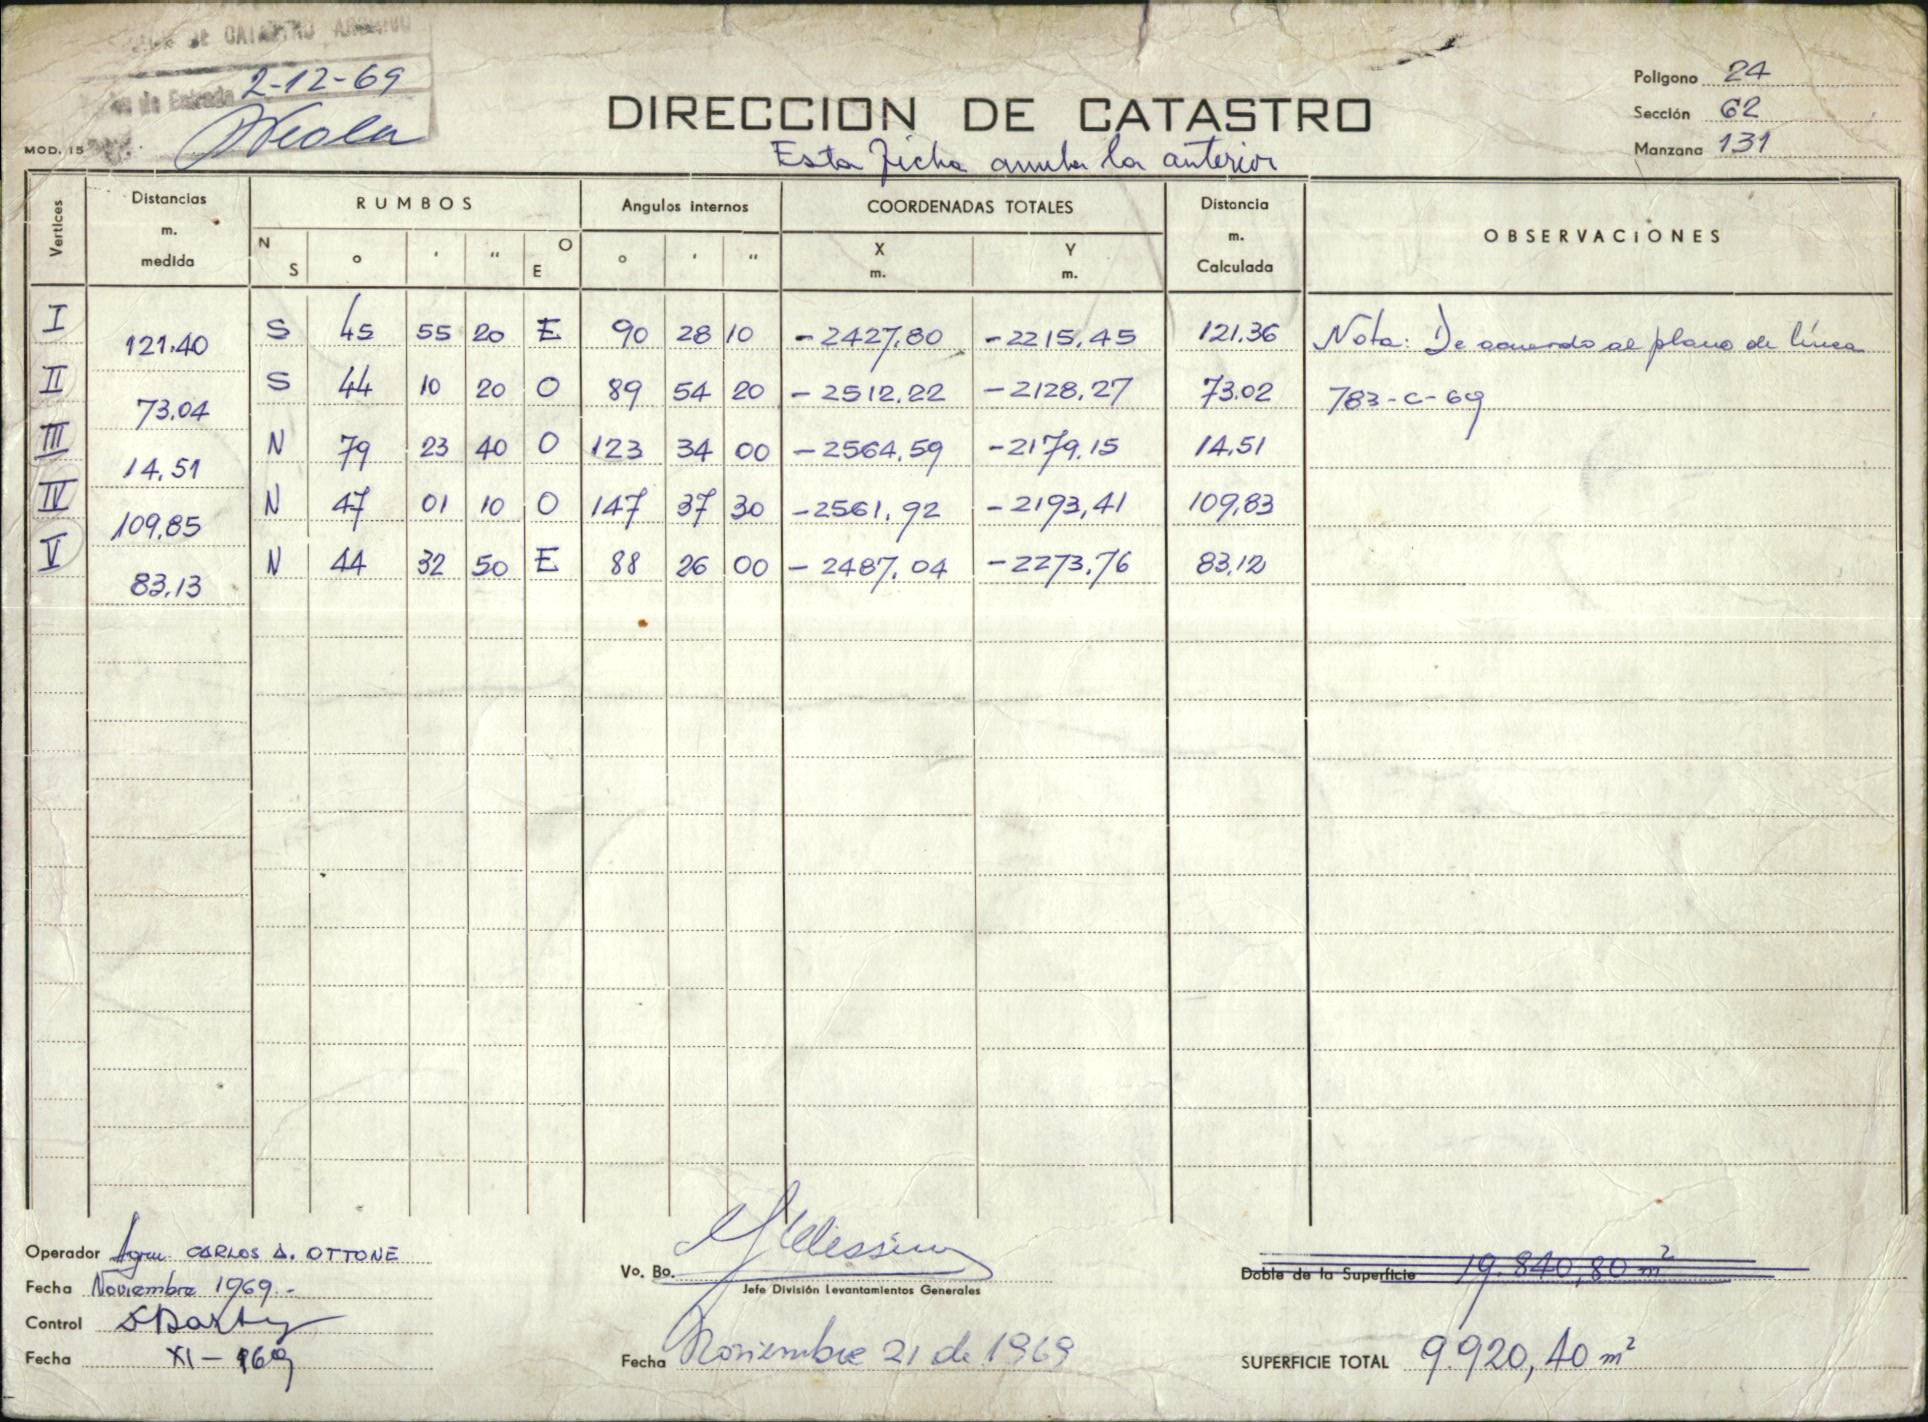 DE CATASTRO ARCHIVO
2-12-69
de Entrada
MOD. 15
DIRECCION DE CATASTRO
Esta ficha anula la anterior
Poligono 24
Sección 62
Manzana 131
Vertices Distancias m. medida RUMBOS Angulos internos COORDENADAS TOTALES Distancia m. Calculada OBSERVACIONES
N S ° ' " O E ° ' " X m. Y m.
I 121.40 S 45 55 20 E 90 28 10 -2427,80 -2215,45 121,36 Nota: De acuerdo al plano de línea
II 73.04 S 44 10 20 O 89 54 20 -2512,22 -2128,27 73.02 783-C-69
III 14,51 N 79 23 40 O 123 34 00 -2564,59 -2179,15 14,51
IV 109,85 N 47 01 10 O 147 37 30 -2561,92 -2193,41 109,83
V 83,13 N 44 32 50 E 88 26 00 -2487,04 -2273,76 83,12
Operador Agrm. CARLOS A. OTTONE
Fecha Noviembre 1969.-
Control
Fecha XI-969
Vo. Bo.
Jefe División Levantamientos Generales
Fecha Noviembre 21 de 1969
Doble de la Superficie 19.840,80 m²
SUPERFICIE TOTAL 9.920,40 m²